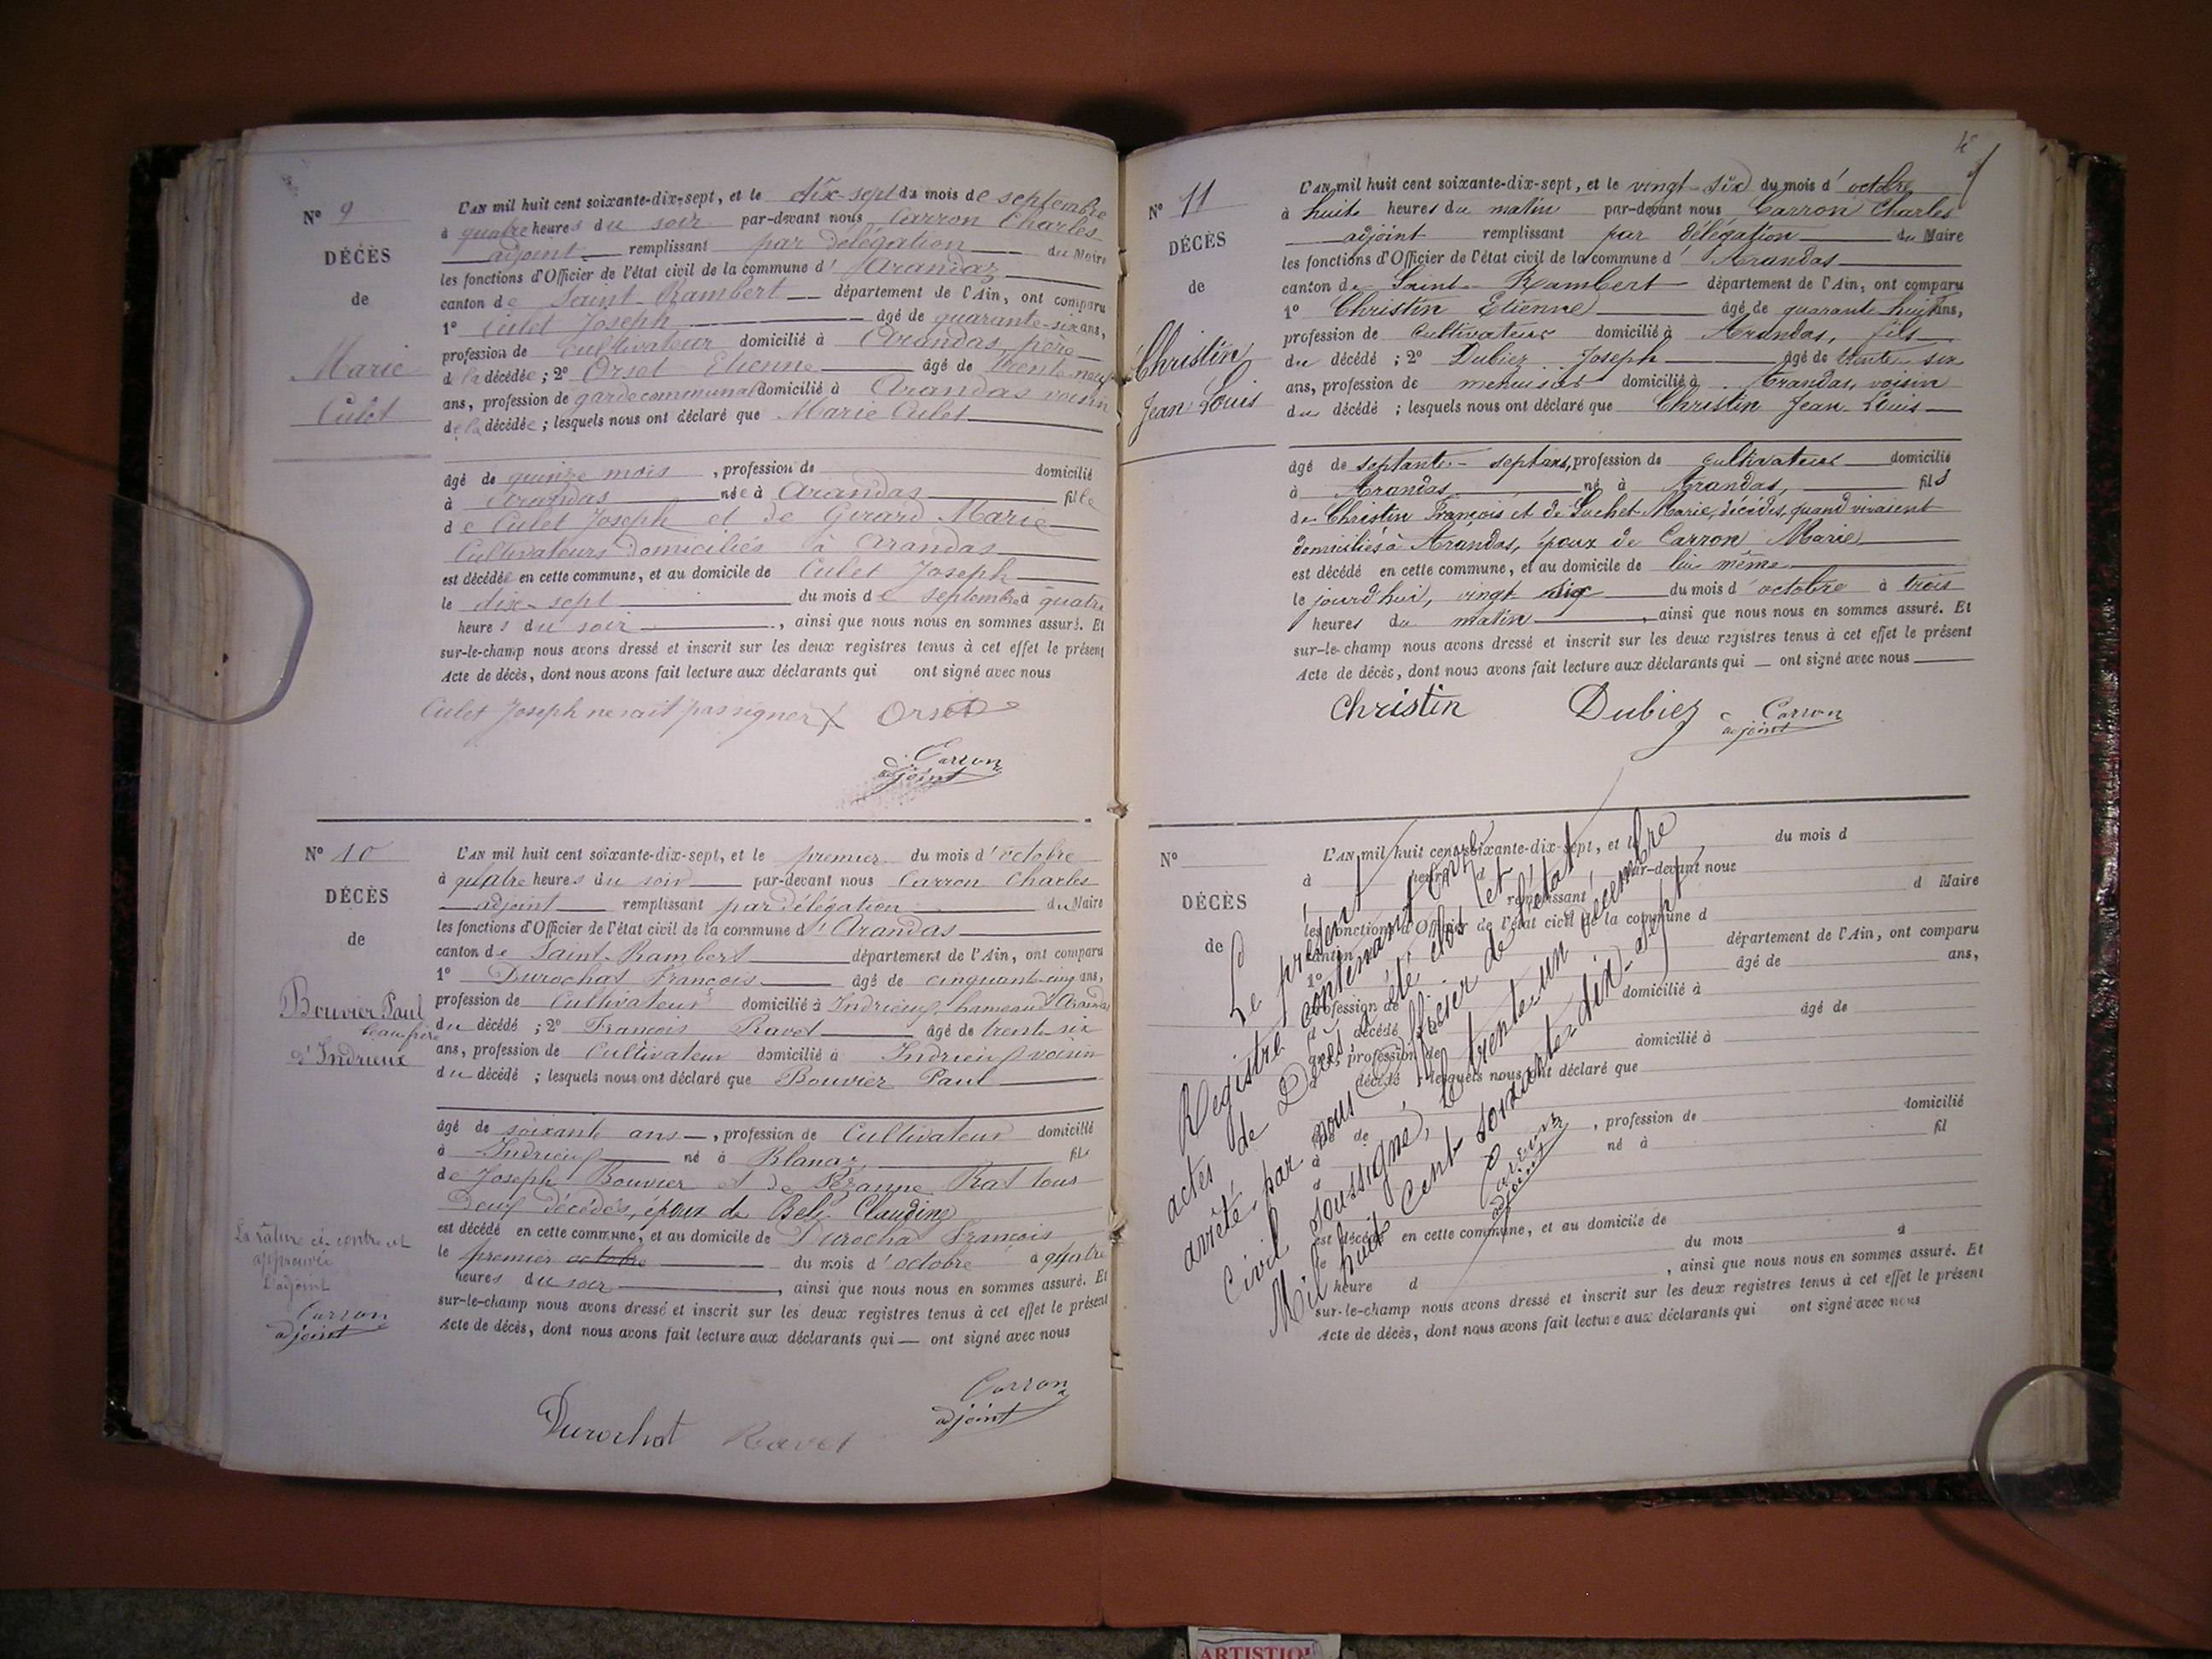 N° 9
DÉCÈS
de
Marie
Culet
L'AN mil huit cent soixante-dix-sept, et le dix-sept du mois de septembre
à quatre heures du soir par-devant nous Carron Charles
adjoint remplissant par délégation du Maire
les fonctions d'Officier de l'état civil de la commune d' Arandaz
canton de Saint-Rambert département de l'Ain, ont comparu
1° Culet Joseph âgé de quarante-six ans,
profession de Cultivateur domicilié à Arandas, père
de la décédée ; 2° Orset Etienne âgé de trente neuf
ans, profession de garde communal domicilié à Arandas voisin
de la décédée ; lesquels nous ont déclaré que Marie Culet
âgé de quinze mois , profession de domicilié
à Arandas née à Arandas fille
de Culet Joseph et de Girard Marie
Cultivateurs domiciliés à Arandas
est décédée en cette commune, et au domicile de Culet Joseph
le dix-sept du mois de septembre à quatre
heures du soir , ainsi que nous nous en sommes assuré. Et
sur-le-champ nous avons dressé et inscrit sur les deux registres tenus à cet effet le présent
Acte de décès, dont nous avons fait lecture aux déclarants qui ont signé avec nous
Culet Joseph ne sait pas signer X Orset
Carron
adjoint
N° 10
DÉCÈS
de
Bouvier Paul
beau frère
d'Indrieux
L'AN mil huit cent soixante-dix-sept, et le premier du mois d'octobre
à quatre heures du soir par-devant nous Carron Charles
adjoint remplissant par délégation du Maire
les fonctions d'Officier de l'état civil de la commune d' Arandas
canton de Saint-Rambert département de l'Ain, ont comparu
1° Durochat François âgé de cinquante-cinq ans,
profession de Cultivateur domicilié à Indrieux, hameau d'Arandas
du décédé ; 2° François Ravet âgé de trente six
ans, profession de Cultivateur domicilié à Indrieux voisin
du décédé ; lesquels nous ont déclaré que Bouvier Paul
âgé de soixante ans , profession de Cultivateur domicilié
à Indrieux né à Blanaz fils
de Joseph Bouvier et de Rat tous
deux décédés, époux de Claudine
est décédé en cette commune, et au domicile de Durochat François
le premier octobre du mois d'octobre à quatre
heures du soir , ainsi que nous nous en sommes assuré. Et
sur-le-champ nous avons dressé et inscrit sur les deux registres tenus à cet effet le présent
Acte de décès, dont nous avons fait lecture aux déclarants qui — ont signé avec nous
La rature ci-contre est
approuvée
L'adjoint
Carron
adjoint
Durochat Ravet
Carron
adjoint
N° 11
DÉCÈS
de
Christin
Jean Louis
L'AN mil huit cent soixante-dix-sept, et le vingt-six du mois d' octobre
à huit heures du matin par-devant nous Carron Charles
adjoint remplissant par délégation du Maire
les fonctions d'Officier de l'état civil de la commune d' Arandas
canton de Saint-Rambert département de l'Ain, ont comparu
1° Christin Etienne âgé de quarante huit ans,
profession de Cultivateur domicilié à Arandas, fils
du décédé ; 2° Dubiez Joseph âgé de trente six
ans, profession de menuisier domicilié à Arandas, voisin
du décédé ; lesquels nous ont déclaré que Christin Jean Louis
âgé de septante-sept ans, profession de cultivateur domicilié
à Arandas né à Arandas, fils
de Christin François et de Marie, décédés, quand vivaient
domiciliés à Arandas, époux de Carron Marie
est décédé en cette commune, et au domicile de lui même
le jourd'hui, vingt six du mois d' octobre à trois
heures du matin , ainsi que nous nous en sommes assuré. Et
sur-le-champ nous avons dressé et inscrit sur les deux registres tenus à cet effet le présent
Acte de décès, dont nous avons fait lecture aux déclarants qui — ont signé avec nous
Christin Dubiez Carron
adjoint
N°
DÉCÈS
de
L'AN mil huit cent soixante-dix-sept, et le du mois d
à heure d par-devant nous
remplissant d Maire
les fonctions d'Officier de l'état civil de la commune d
canton département de l'Ain, ont comparu
1° âgé de ans,
profession de domicilié à
décédé âgé de
ans, profession de domicilié à
décédé ; lesquels nous ont déclaré que
âgé de , profession de domicilié
à né à fil
d
est décédé en cette commune, et au domicile de
le du mois d
heure d , ainsi que nous nous en sommes assuré. Et
sur-le-champ nous avons dressé et inscrit sur les deux registres tenus à cet effet le présent
Acte de décès, dont nous avons fait lecture aux déclarants qui ont signé avec nous
Le présent
Registre contenant onze
actes de Décès, a été clos et
arrêté par nous Officier de l'état
Civil soussigné, le trente un décembre
Mil huit cent soixante-dix-sept
Carron
adjoint
ARTISTIQU